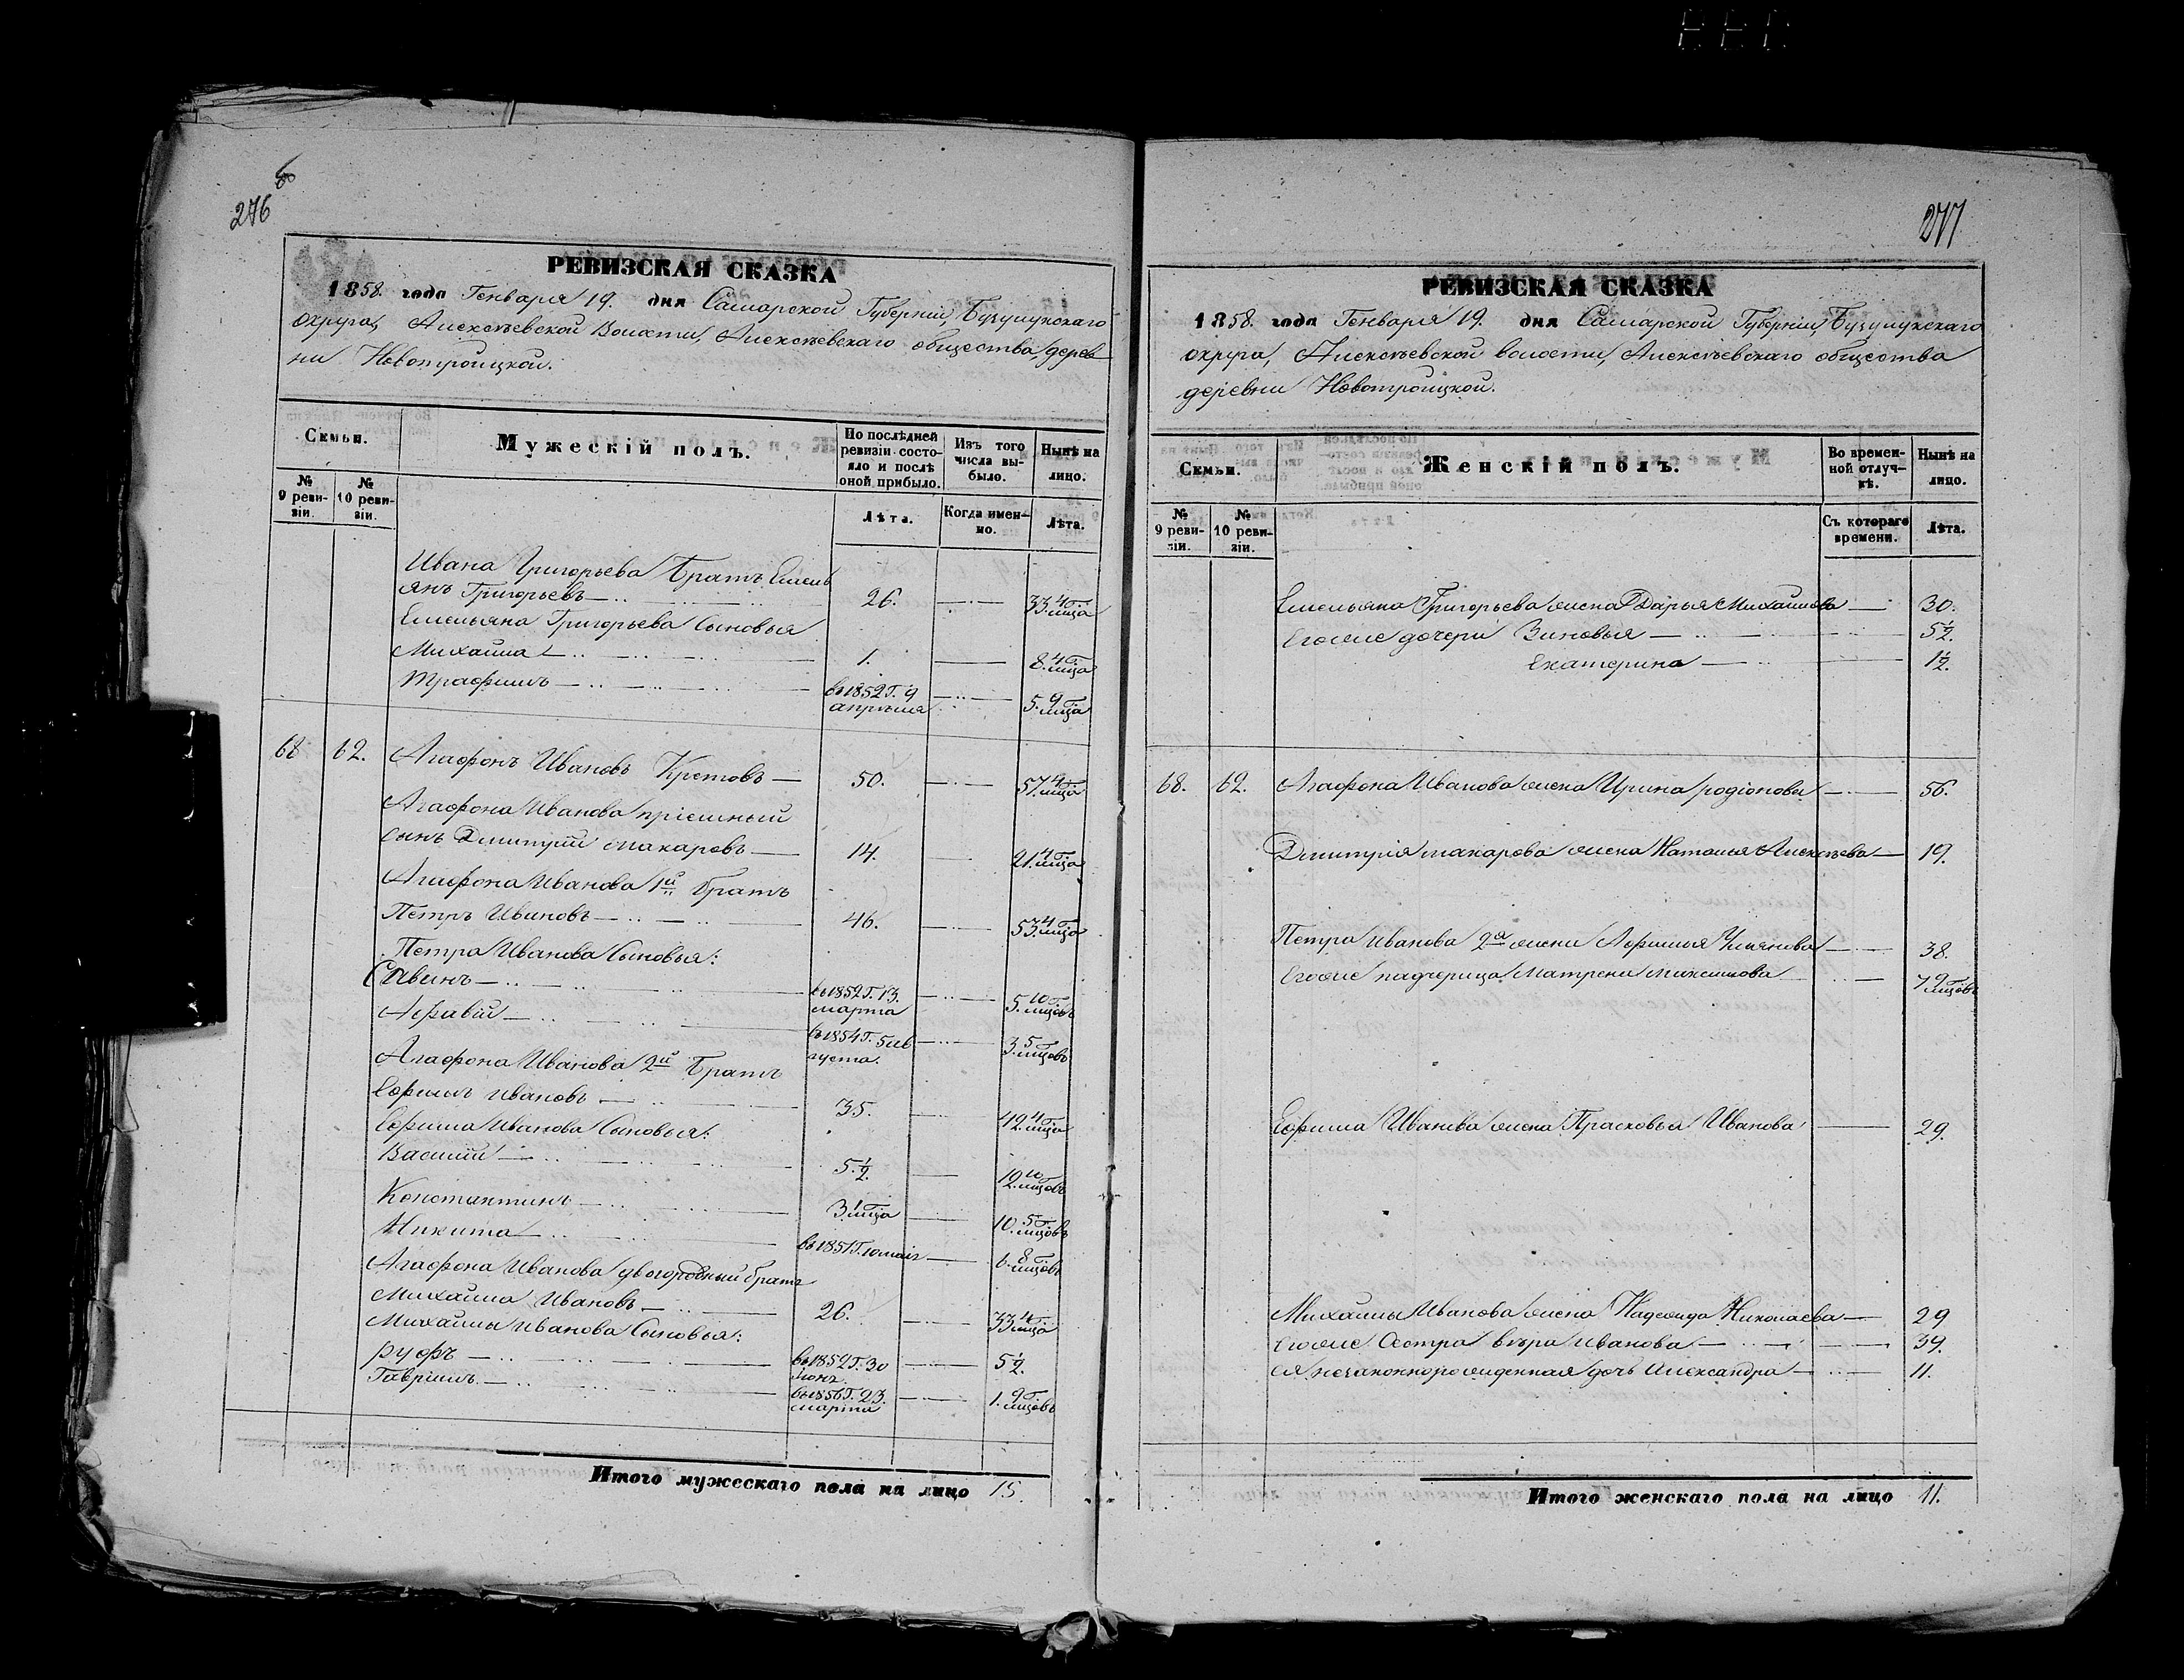 276
РЕВИЗСКАЯ СКАЗКА
1858. года Генваря 19. дня Самарской Губернии, Бузулукскаго
округа, Алексѣевской Волости, Алексѣевскаго общества, дерев-
ни Новотроицкой.
Семьи.
Мужескій полъ.
По послѣдней ревизіи состояло и послѣ оной прибыло.
Изъ того числа выбыло.
Нынѣ на лицо.
№ 9 ревизіи.
№ 10 ревизіи.
Лѣта.
Когда именно.
Лѣта.
Ивана Григорьева Братъ Емель
янъ Григорьевъ 26. 33. 4 мца
Емельяна Григорьева Сыновья
Михайла 1. 8. 4 мца
Трафимъ въ 1852 г. 9 апрѣля 5. 9 мца
68 62. Агафонъ Ивановъ Кретовъ 50. 57. 4 мца
Агафона Иванова пріемный
сынъ Дмитрий макаровъ 14. 21. 4 мца
Агафона Иванова 1й Братъ
Петръ Ивановъ 46. 53. 4 мца
Петра Иванова Сыновья:
Савинъ въ 1852 г. 13. марта 5. 10 мцовъ
въ 1854 г. 5 ав густа. 3. 5 мцовъ
Агафона Иванова 2й Братъ
Ефимъ ивановъ 35. 42. 4 мца
Ефима Иванова Сыновья:
Василий 5 1/2 12. 10 мцовъ
Константинъ 3. 1 мца 10. 5 мцовъ
Никита въ 1851 г. 6. 8 мцовъ
Агафона Иванова двогородный братъ
Михайла Ивановъ 26. 33. 4 мца
Михайлы Иванова Сыновья:
руфъ въ 1852 г. 30 5 1/2.
Гаврiилъ въ 1856 г. 23. марта 1. 9 мцовъ
Итого мужескаго пола на лицо 15.
277
РЕВИЗСКАЯ СКАЗКА
1858. года Генваря 19. дня Самарской Губерніи, Бузулукскаго
округа, Алексѣевской волости, Алексѣевскаго общества
деревни Новотроицкой.
Семьи.
Женскій полъ.
Во временной отлучкѣ.
Нынѣ на лицо.
№ 9 ревизіи.
№ 10 ревизіи.
Съ котораго времени.
Лѣта.
Емельяна Григорьева жена Дарья Михайлова 30.
Егоже дочери Зиновья 5 1/2.
Екатерина 1 1/2.
68. 62. Агафона Иванова жена Ирина родіонова 56.
Дмитрія макарова жена Наталья Алексѣева 19.
Петра иванова 2я жена Афимья 38.
Егоже падчерица Матрена Максимова 7 9 мцовъ
Ефима Иванова жена Прасковья Иванова 29.
Михайлы Иванова жена Надежида Николаева 29
Егоже Сестра вѣра иванова 34.
ея незаконнорожиденная дочь Александра 11.
Итого женскаго пола на лицо 11.